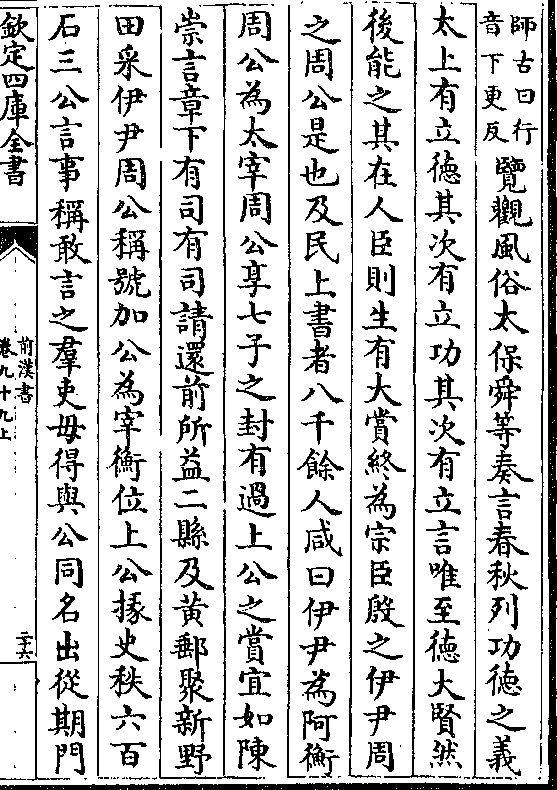 師古曰行
音下更反
覽觀風俗太保舜等奏言春秋列功德之義
太上有立德其次有立功其次有立言唯至德大賢然
後能之其在人臣則生有大賞終為宗臣殷之伊尹周
之周公是也及民上書者八千餘人咸曰伊尹為阿衡
周公為太宰周公享七子之封有過上公之賞宜如陳
崇言章下有司有司請還前所益二縣及黄郵聚新野
田采伊尹周公稱號加公為宰衡位上公掾史秩六百
石三公言事稱敢言之羣吏毋得與公同名出從期門
欽定四庫全書
前漢書
卷九十九上
三六